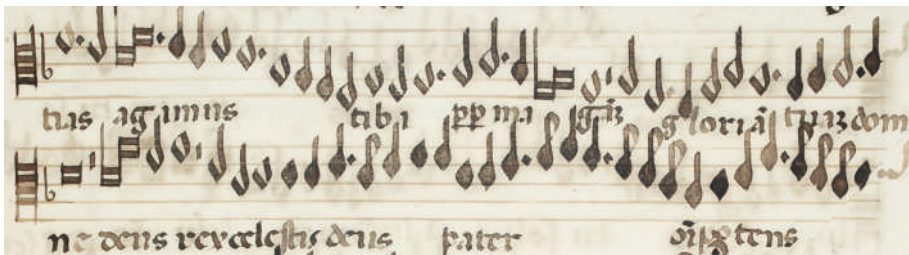 tias agimus tibi pp ma gā gloriā tuaz dom
ne deus rex celestis deus pater oīpotens